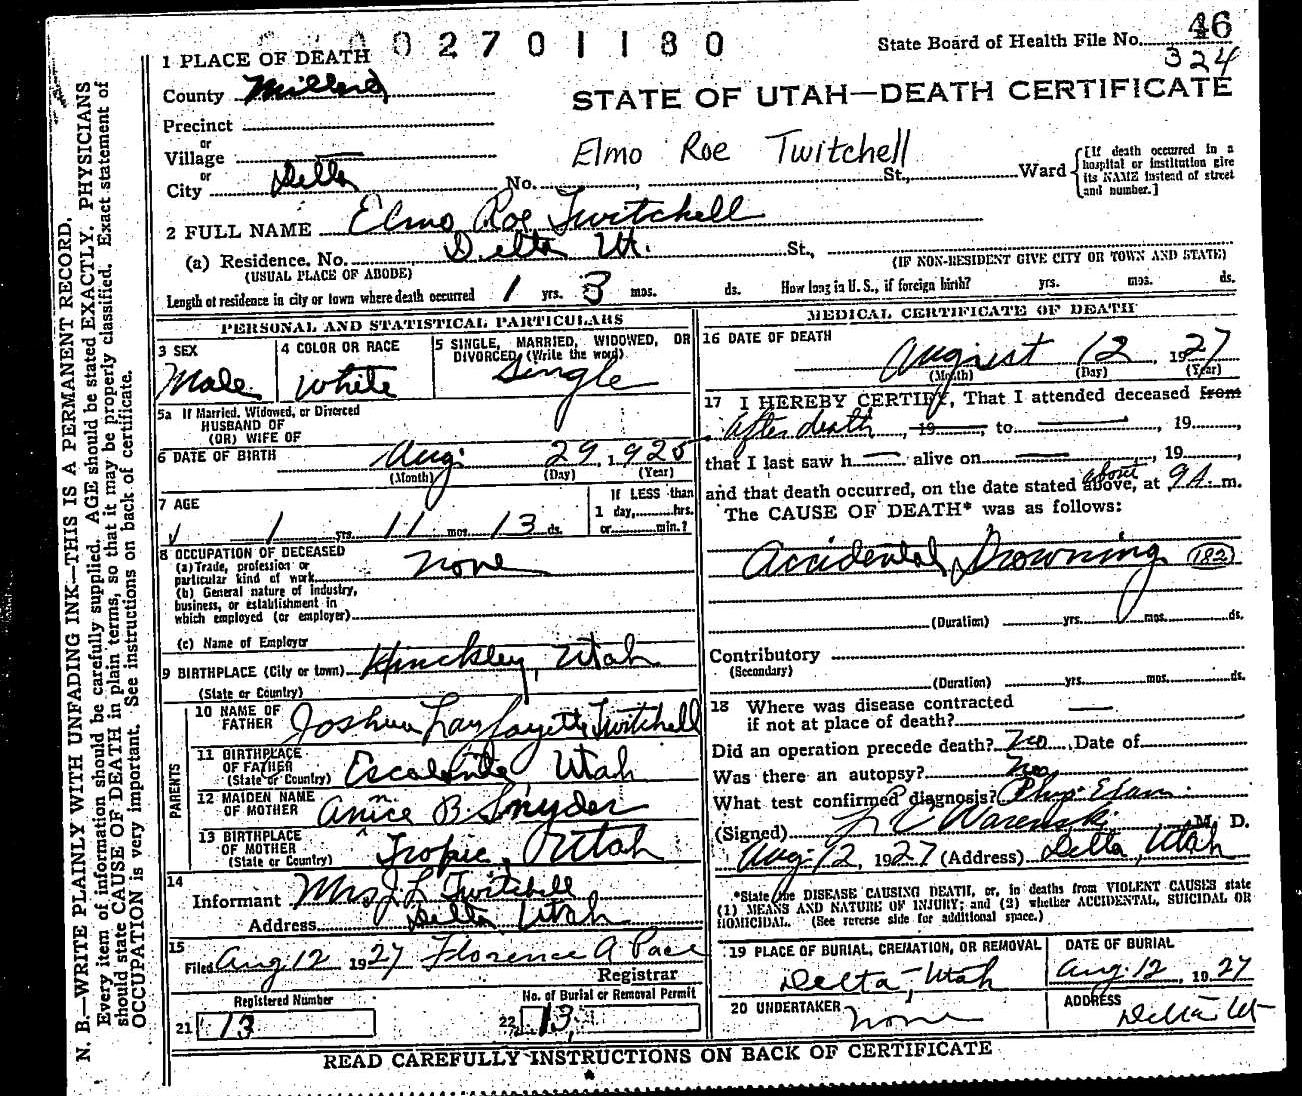 0 0 2 7 0 1 1 8 0
State Board of Health File No. 46
324
1 PLACE OF DEATH
County Millard
STATE OF UTAH—DEATH CERTIFICATE
Precinct
or
Village
Elmo Roe Twitchell
or
City Delta No. , St., Ward
[If death occurred in a hospital or institution give its NAME instead of street and number.]
2 FULL NAME Elmo Roe Twitchell
(a) Residence. No. Delta Ut. St.,
(USUAL PLACE OF ABODE) (IF NON-RESIDENT GIVE CITY OR TOWN AND STATE)
Length of residence in city or town where death occurred 1 yrs. 3 mos. ds. How long in U. S., if foreign birth? yrs. mos. ds.
PERSONAL AND STATISTICAL PARTICULARS
3 SEX
Male
4 COLOR OR RACE
White
5 SINGLE, MARRIED, WIDOWED, OR
DIVORCED (Write the word)
Single
5a If Married, Widowed, or Divorced
HUSBAND OF
(OR) WIFE OF
6 DATE OF BIRTH Aug. 29, 1925
(Month) (Day) (Year)
7 AGE
1 yrs. 11 mos. 13 ds.
If LESS than
1 day, hrs.
or min.?
8 OCCUPATION OF DECEASED
(a) Trade, profession or
particular kind of work none
(b) General nature of Industry,
business, or establishment in
which employed (or employer)
(c) Name of Employer
9 BIRTHPLACE (City or town) Hinckley, Utah
(State or Country)
PARENTS
10 NAME OF
FATHER Joshua Layfayette Twitchell
11 BIRTHPLACE
OF FATHER
(State or Country) Escalante Utah
12 MAIDEN NAME
OF MOTHER Annice B. Snyder
13 BIRTHPLACE
OF MOTHER
(State or Country) Tropic, Utah
14
Informant Mrs J L Twitchell
Address Delta Utah
15
Filed Aug 12 1927 Florence A Pace
Registrar
Registered Number
21 13
No. of Burial or Removal Permit
22 13
MEDICAL CERTIFICATE OF DEATH
16 DATE OF DEATH
August 12 1927
(Month) (Day) (Year)
17 I HEREBY CERTIFY, That I attended deceased from
after death, 19 , to , 19 ,
that I last saw h alive on , 19 ,
and that death occurred, on the date stated above, at 9 A. m.
about
The CAUSE OF DEATH* was as follows:
Accidental Drowning (182)
(Duration) yrs. mos. ds.
Contributory
(Secondary)
(Duration) yrs. mos. ds.
18 Where was disease contracted
if not at place of death?
Did an operation precede death? No Date of
Was there an autopsy? No
What test confirmed diagnosis? Phys. Exam.
(Signed) M. D.
Aug 12, 1927 (Address) Delta, Utah
*State the DISEASE CAUSING DEATH, or, in deaths from VIOLENT CAUSES state
(1) MEANS AND NATURE OF INJURY; and (2) whether ACCIDENTAL, SUICIDAL OR
HOMICIDAL. (See reverse side for additional space.)
19 PLACE OF BURIAL, CREMATION, OR REMOVAL
Delta, Utah
DATE OF BURIAL
Aug. 12, 1927
20 UNDERTAKER
none
ADDRESS
Delta Ut
READ CAREFULLY INSTRUCTIONS ON BACK OF CERTIFICATE
N. B.—WRITE PLAINLY WITH UNFADING INK—THIS IS A PERMANENT RECORD.
Every item of information should be carefully supplied. AGE should be stated EXACTLY. PHYSICIANS
should state CAUSE OF DEATH in plain terms, so that it may be properly classified. Exact statement of
OCCUPATION is very important. See instructions on back of certificate.